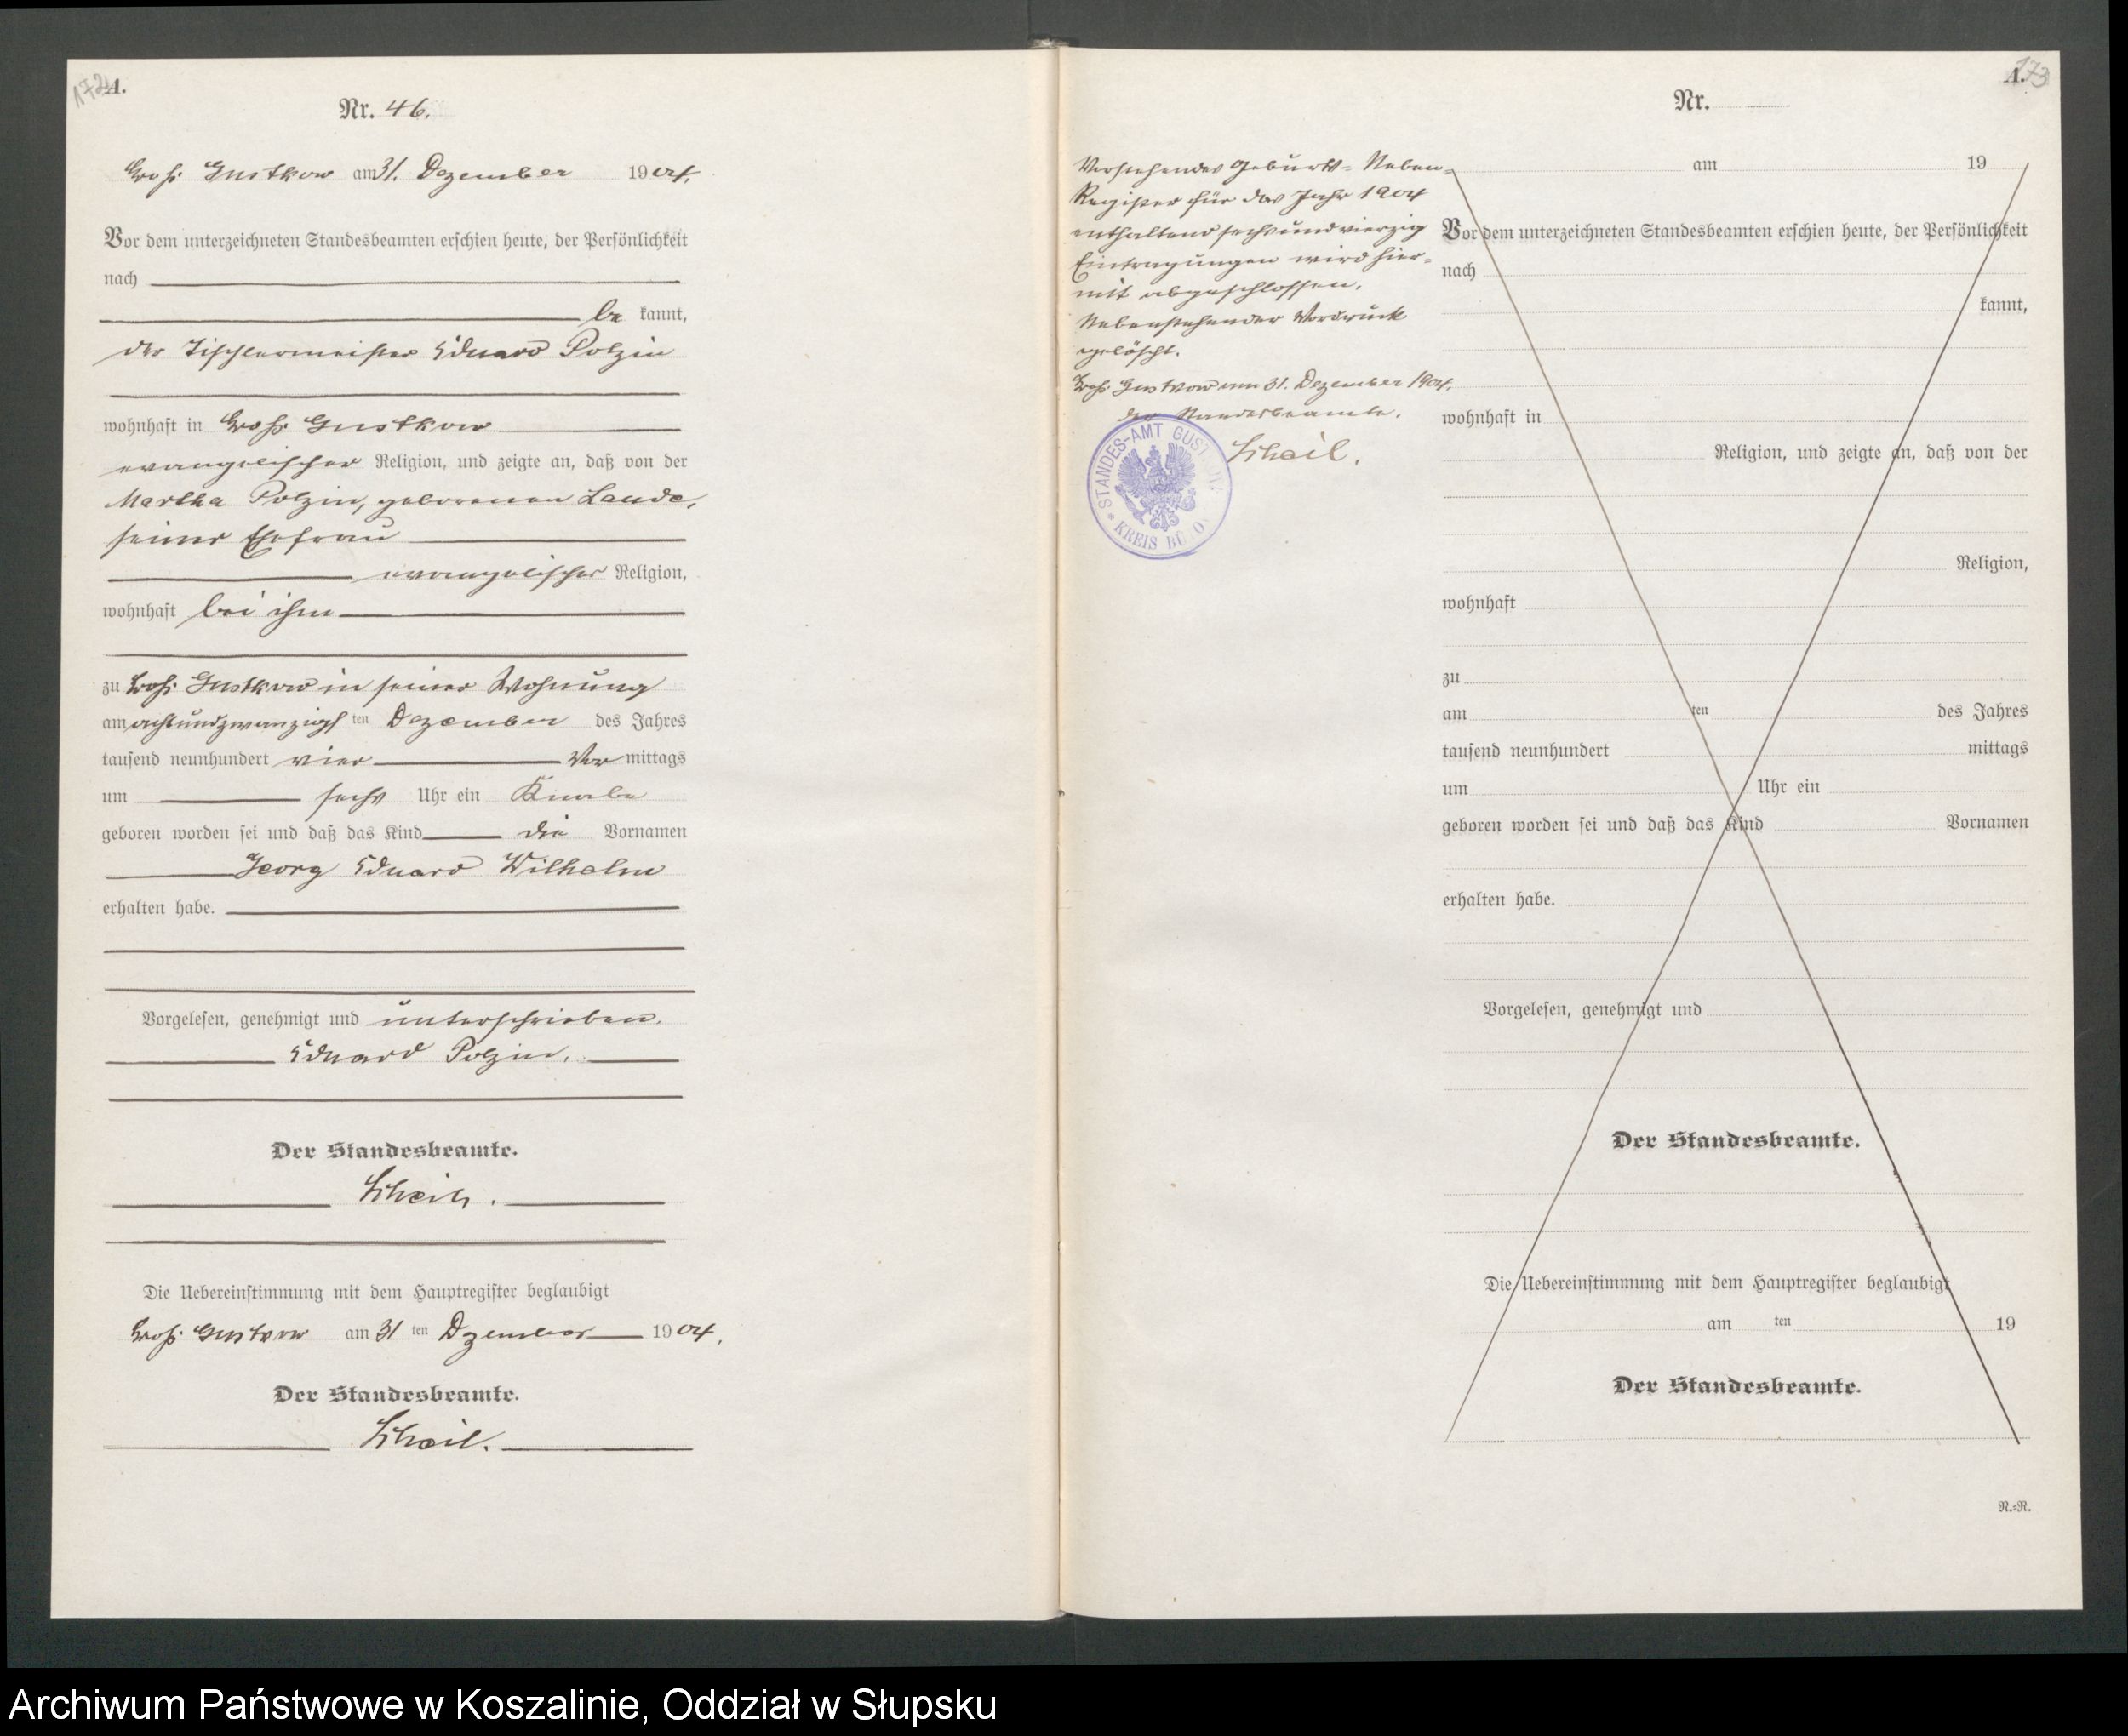 172
A.
Nr. 46.
Groß Gustkow am 31. Dezember 1904.
Vor dem unterzeichneten Standesbeamten erschien heute, der Persönlichkeit
nach
be kannt,
der Tischlermeister Eduard Polzin
wohnhaft in Groß Gustkow
evangelischer Religion, und zeigte an, daß von der
Martha Polzin, geborenen Laude,
seiner Ehefrau
evangelischer Religion,
wohnhaft bei ihm
zu Groß Gustkow in seiner Wohnung
am achtundzwanzigsten Dezember des Jahres
tausend neunhundert vier Vor mittags
um sechs Uhr ein Knabe
geboren worden sei und daß das Kind die Vornamen
Georg Eduard Wilhelm
erhalten habe.
Vorgelesen, genehmigt und unterschrieben.
Eduard Polzin.
Der Standesbeamte.
Scheil.
Die Uebereinstimmung mit dem Hauptregister beglaubigt
Groß Gustkow am 31 ten Dezember 1904.
Der Standesbeamte.
Scheil.
173
A.
Nr.
Vorstehendes Geburts-Neben-
Register für das Jahr 1904
enthaltend sechsundvierzig
Eintragungen wird hier-
mit abgeschlossen.
Nebenstehender Vordruck
gelöscht.
Groß Gustkow am 31. Dezember 1904.
Der Standesbeamte.
Scheil.
STANDES-AMT
* KREIS
am 19
Vor dem unterzeichneten Standesbeamten erschien heute, der Persönlichkeit
nach
kannt,
wohnhaft in
Religion, und zeigte an, daß von der
Religion,
wohnhaft
zu
am ten des Jahres
tausend neunhundert mittags
um Uhr ein
geboren worden sei und daß das Kind Vornamen
erhalten habe.
Vorgelesen, genehmigt und
Der Standesbeamte.
Die Uebereinstimmung mit dem Hauptregister beglaubigt
am ten 19
Der Standesbeamte.
N.=R.
Archiwum Państwowe w Koszalinie, Oddział w Słupsku